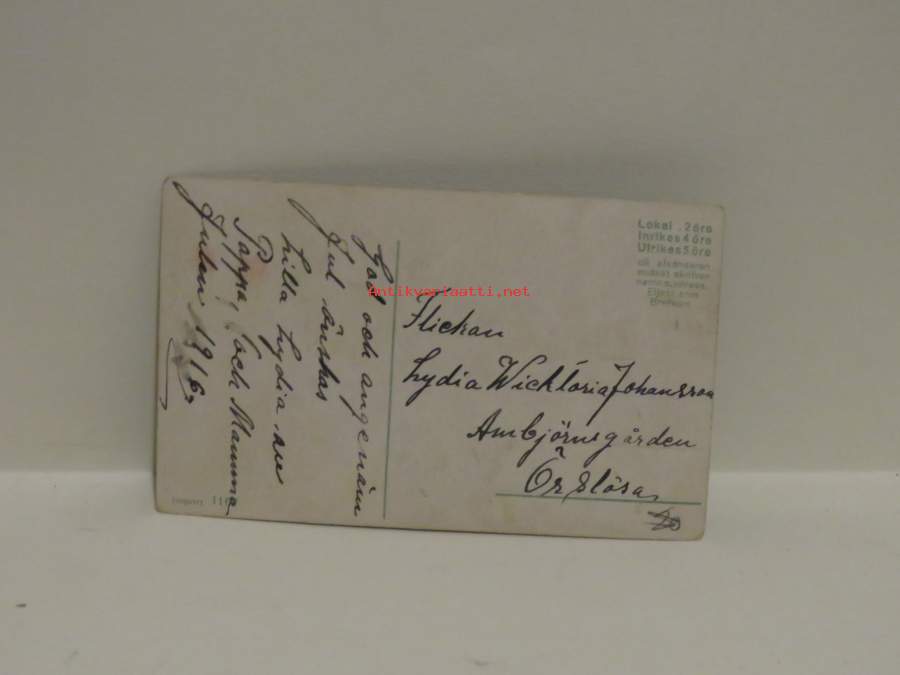 God och angenäm
Jul önskas
Lilla Lydia av
Pappa och Mamma
Julen 1916
Lokal . 2 öre
Inrikes 4 öre
Utrikes 5 öre
Flickan
Lydia Wicktöria Johansson
Ambjörnsgården
Ör Slösa
Antikvariaatti.net